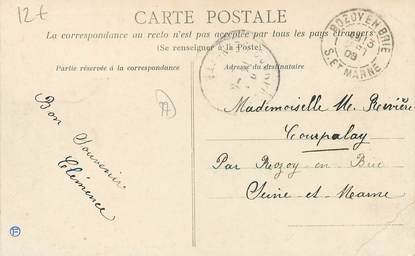 12€
CARTE POSTALE
La correspondance au recto n'est pas acceptée par tous les pays étrangers
(Se renseigner à la Poste)
Partie réservée à la correspondance
Adresse du destinataire
ROZOY EN BRIE
09
S-ET-MARNE
77
Bon
Souvenir
Clémence
Mademoiselle M. Rivière
Courpalay
Par Rozoy en Brie
Seine et Marne